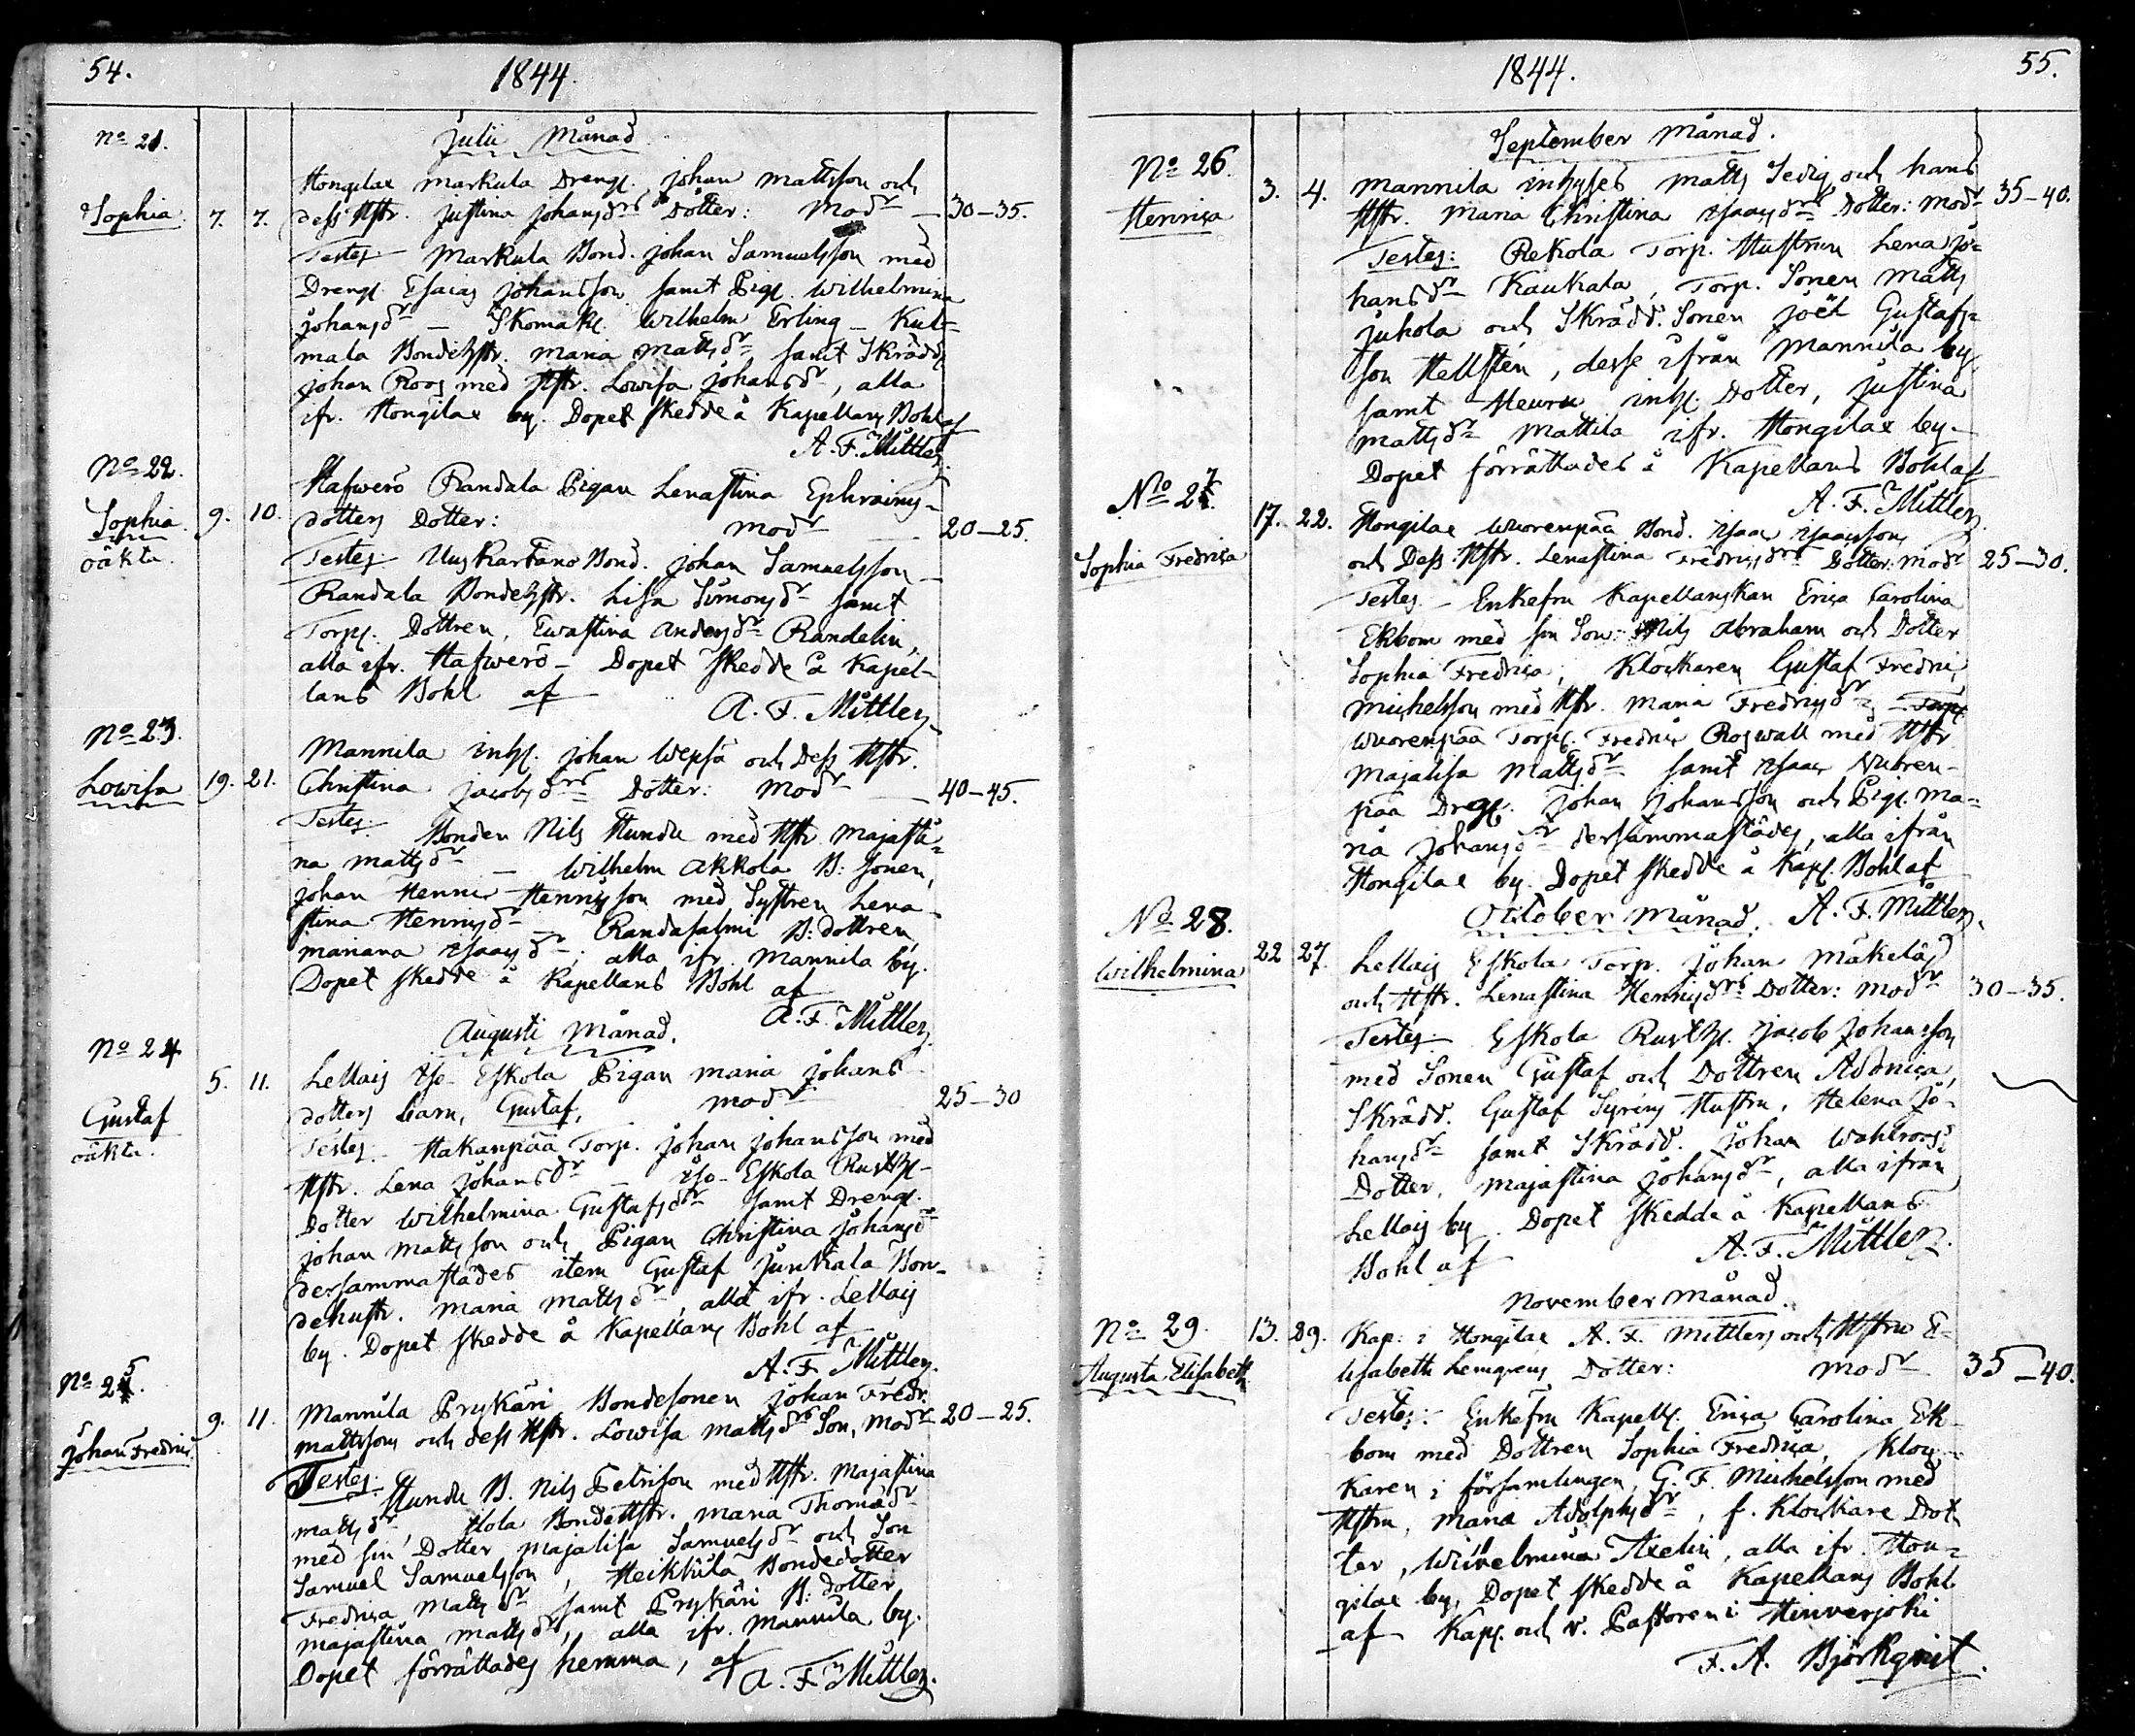 54.
1844.
Julii Månad
No 21.
Hongilax Markula Drengs. Johan Mattsson och
Sophia. 7. 7. dess Hstr. Justina Johansdrs Dotter: Modr — 30–35.
Testes Markula Bond. Johan Samuelsson med
Dreng. Esaias Johansson samt Pig. Wilhelmina
Johansdr — Skomak. Wilhelm Erling — Kul=
mala Bondehstr. Maria Mattsdr samt Skrädd.
Johan Roos med Hstr. Lowisa Johansdr, alla
ifr. Hongilax by. Dopet skedde å Kapellans Bohl af
A. F. Mittler
No 22.
Hafwerö Randala Pigan Lenastina Ephraims=
Sophia 9. 10. dotters Dotter: Modr — 20–25.
oäkta.
Testes Uuskartano Bond. Johan Samuelsson —
Randala Bondehstr. Lisa Simonsdr samt
Torp. Dottren, Ewastina Andersdr Randelin,
alla ifr. Hafwerö — Dopet skedde å Kapel=
lans Bohl af
A. F. Mittler
No 23.
Mannila inhs. Johan Wepsä och Dess Hstr.
Lowisa 19. 21. Christina Jacobsdrs Dotter: Modr — 40–45.
Testes: Bonden Nils Hundu med Hstr Majasti=
na Mattsdr — Wilhelm Akkola B: Sonen,
Johan Henric Henricsson med Systren Lena=
stina Henricsdr — Randasalmi B: dottren,
Mariana Isaacsdr; alla ifr. Mannila by.
Dopet skedde å Kapellans Bohl af
A. F. Mittler
Augusti Månad.
No 24
5. 11. Lellais Iso Eskola Pigan Maria Johans=
Gustaf
oäkta.
dotters barn, Gustaf, Modr 25–30
Testes. Hakanpää Torp. Johan Johansson med
Hstr. Lena Johansdr — Iso Eskola Rusth.
Dotter Wilhelmina Gustafsdr samt Dreng.
Johan Mattsson och Pigan Christina Johansdr
dersammastädes item Gustaf Junkala Bon=
dehustr. Maria Mattsdr, alla ifr. Lellais
by. Dopet skedde å Kapellans Bohl af
A. F. Mittler.
No 25.
9. 11. Mannila Prykäri Bondesonen Johan Fredr.
Johan Fredric
Mattsson och dess Hstr. Lowisa Mattsdrs Son, Modr 20–25.
Testes: Hundu B. Nils Petrisson med Hstr. Majastina
Mattsdr, Hola Bondehstr. Maria Thomædr
med sin Dotter Majalisa Samuelsdr och Son
Samuel Samuelsson, Heikkilä Bondedotter
Fredrica Mattsdr samt Prykäri B: dotter
Majastina Mattsdr, alla ifr. Mannila by.
Dopet förrättades hemma, af
A. F. Mittler.
1844.
55.
September Månad.
No 26.
3. 4. Mannila inhyses Matts Sevig och hans
Henrica
Hstr. Maria Christina Isaacsdrs Dotter: Modr 35–40.
Testes: Rekola Torp. Hustrun Lena Jo=
hansdr Kaukala, Torp. Sonen Matts
Juhola och Skrädd. Sonen Joël Gustafs=
son Hellstén, desse ifrån Mannila by
samt Heuru inhs. Dotter, Justina
Mattsdr Mattila ifr. Hongilax by.
Dopet förrättades å Kapellans Bohl af
A. F. Mittler
No 27.
17. 22. Hongilax Wuorenpää Bond. Isaac Isaacsson
Sophia Fredrica
och Dess Hstr. Lenastina Fredricsdrs Dotter. Modr 25–30.
Testes — Enkefru Kapellanskan Erica Carolina
Ekbom med sin Son Nils Abraham och Dotter
Sophia Fredrica, Klockaren Gustaf Fredric
Michelsson med Hstr. Maria Fredricsdr —
Wuorenpää Torp. Fredric Roswall med Hstr
Majalisa Mattsdr samt Isaac Wuoren=
pää Dreg. Johan Johansson och Pig. Ma=
ria Johansdr dersammastädes, alla ifrån
Hongilax by. Dopet skedde å Kap. Bohl af
October Månad. A. F. Mittler.
No 28.
22 27. Lellais Eskola Torp. Johan Mäkeläs
Wilhelmina
och Hstr. Lenastina Henricsdrs Dotter: Modr 30–35.
Testes Eskola Rusth. Jacob Johansson
med Sonen Gustaf och Dottren Adonica,
Skrädd. Gustaf Syréns Hustru, Helena Jo=
hansdr samt Skrädd. Johan Wahlroos
Dotter, Majastina Johansdr, alla ifrån
Lellais by. Dopet skedde å Kapellans
Bohl af
A. F. Mittler.
November Månad.
No 29. 13. 29. Kap. i Hongilax A. F. Mittlers och Hstru E=
Augusta Elisabeth
lisabeth Lemgrens Dotter: Modr 35–40.
Testes: Enkefru Kapells. Erica Carolina Ek=
bom med Dottren Sophia Fredrica, Kloc=
karen i församlingen G. F. Michelsson med
Hstru, Maria Adolphsdr, f. Klockare Dot=
ter, Wilhelmina Axelin, alla ifr. Hon=
gilax by, Dopet skedde å Kapellans Bohl
af Kap. och v. Pastoren i Hinnerjoki
F. A. Björkqvist.